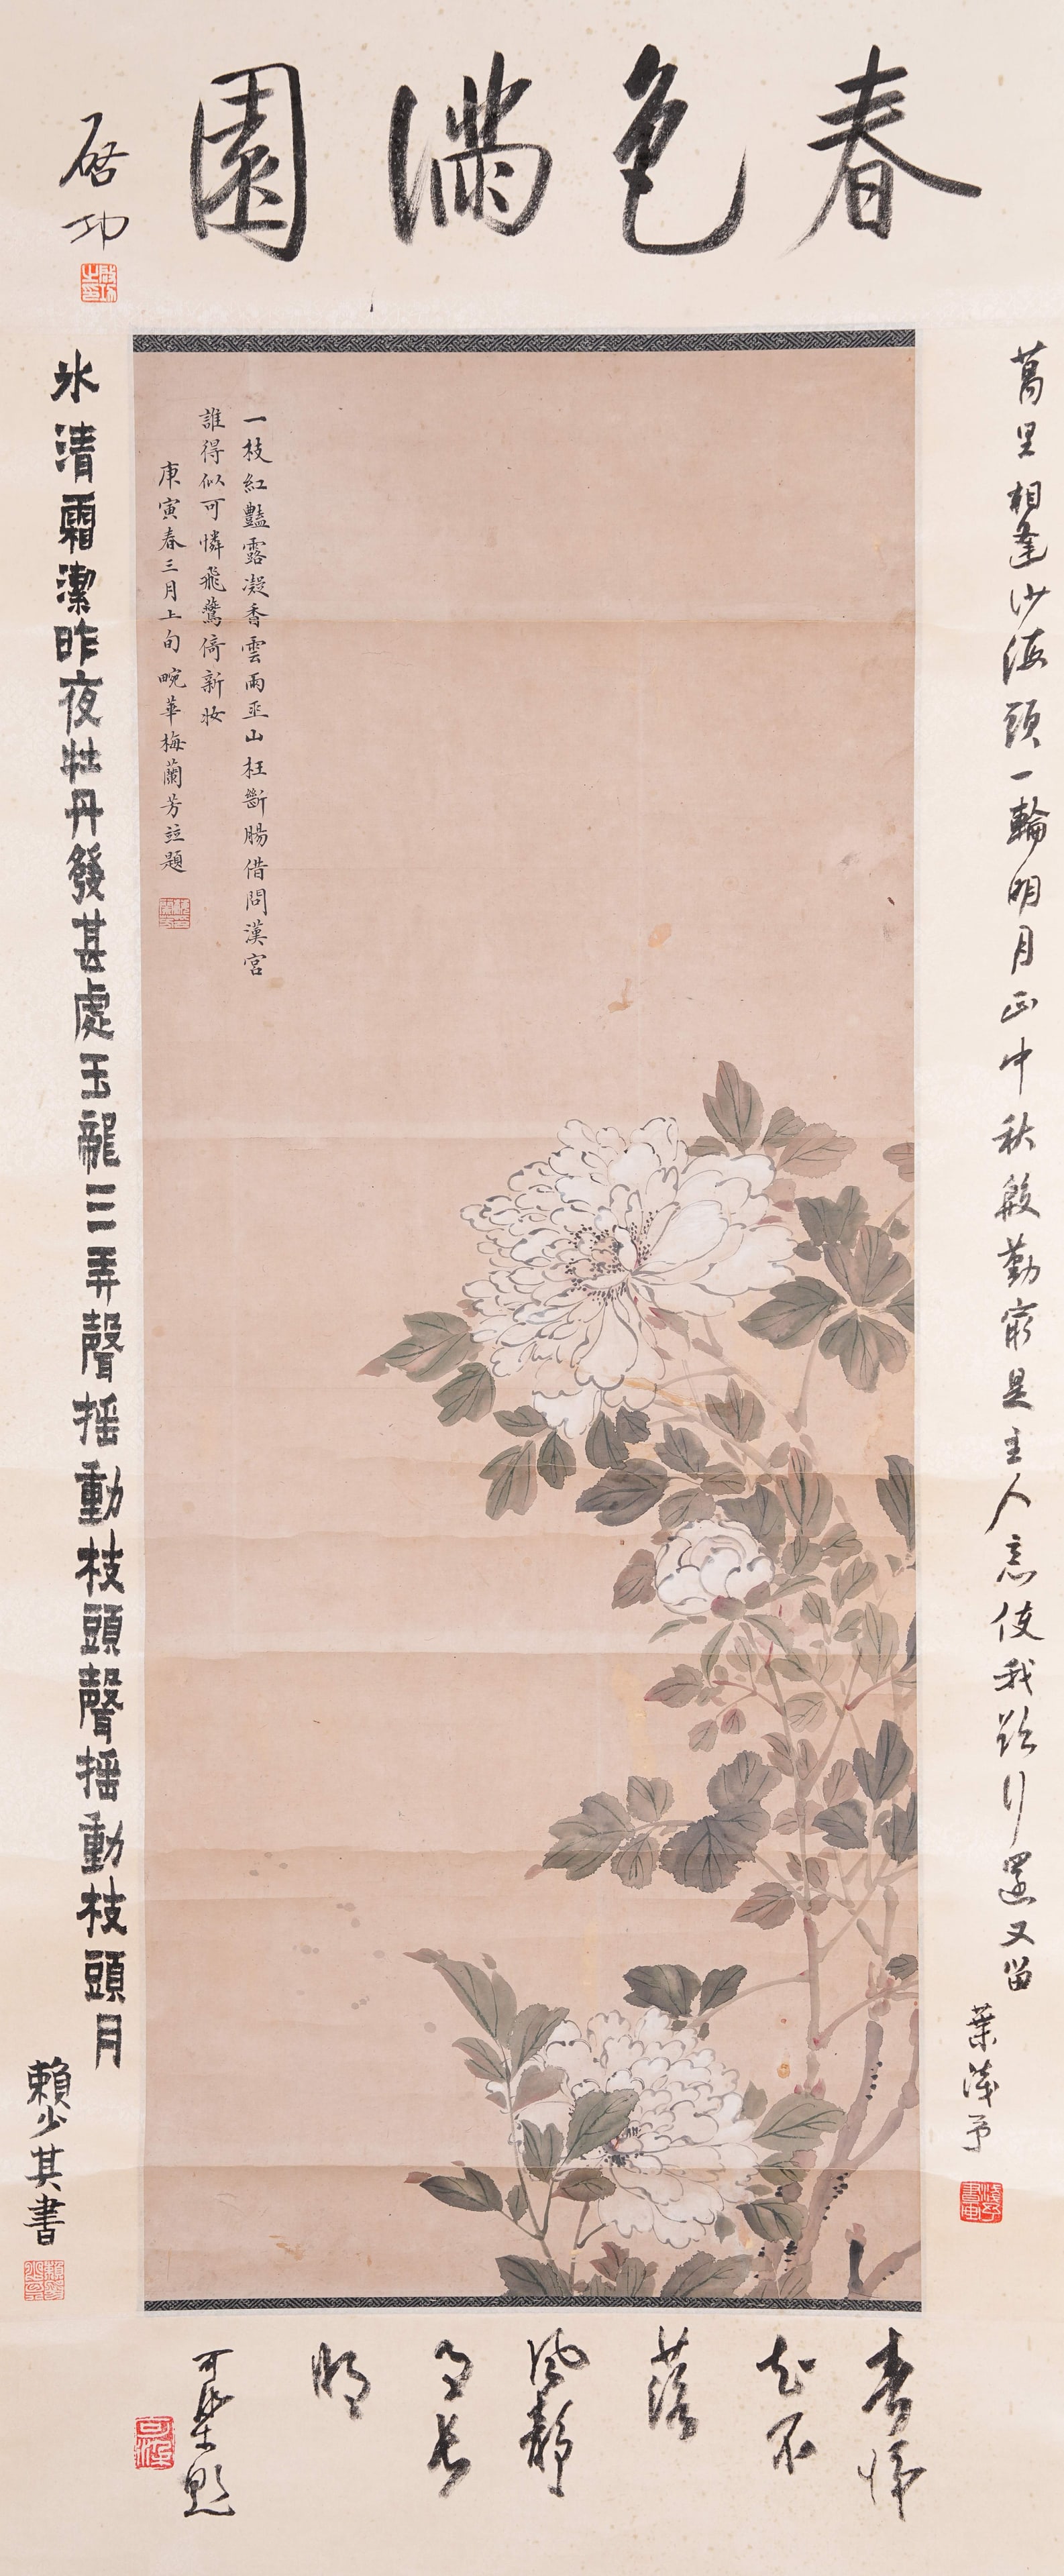 春色滿園
啓功
啟功之印
萬里相逢沙海頭一輪明月正中秋殷勤窮是主人意使我欲行還又留
葉淺予
淺予書画
一枝紅豔露凝香雲雨巫山枉斷腸借問漢宮
誰得似可憐飛鶯倚新妆
庚寅春三月上旬畹華梅蘭芳並題
氷清霜潔昨夜牡丹發甚處玉龍三弄聲搖動枝頭聲搖動枝頭月
賴少其書
春歸
花不
落
風靜
月長
明
可染題
可染